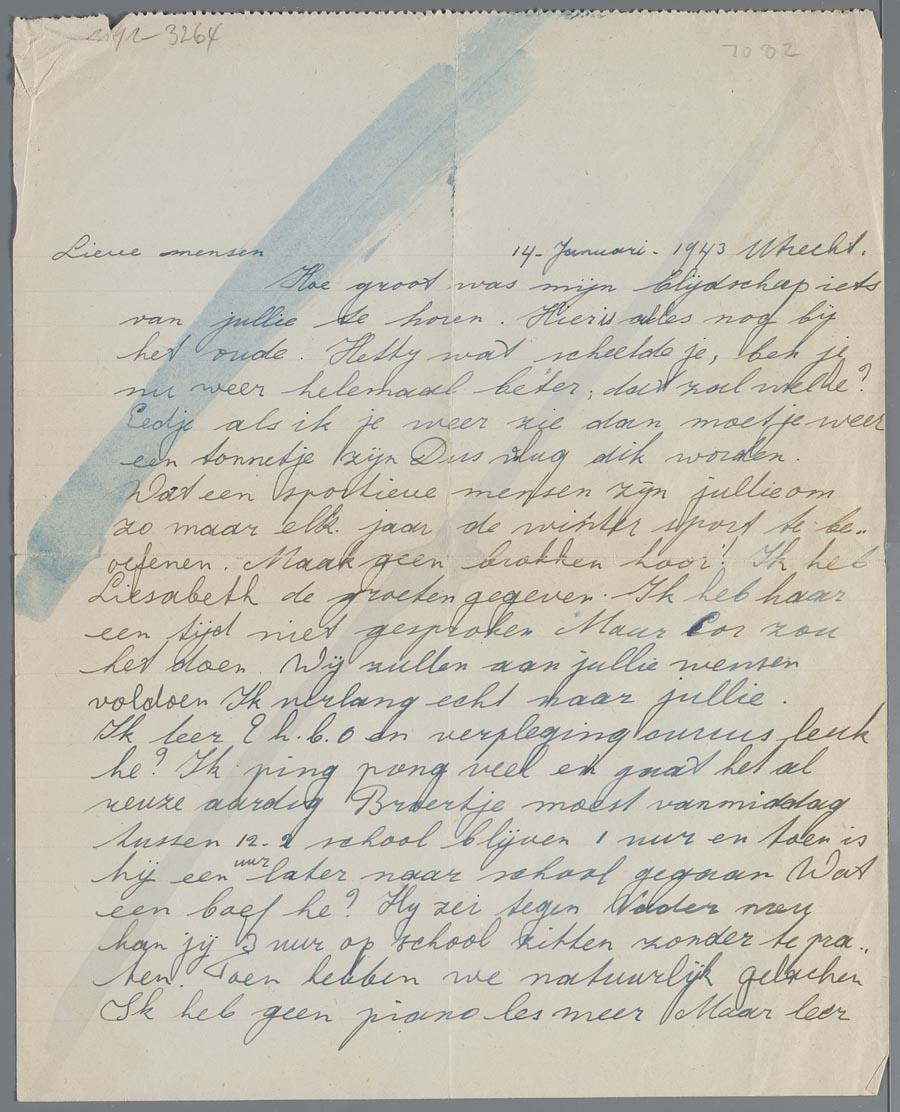 3264
7082
Lieve mensen 14-Januari-1943 Utrecht.
Hoe groot was mijn blijdschap iets
van jullie te horen. Hier is alles nog bij
het oude. Hetty wat scheelde je, ben je
nu weer helemaal beter, dat zal wel he?
Eedje als ik je weer zie dan moet je weer
een tonnetje zijn Dus vlug dik worden.
Wat een sportieve mensen zijn jullie om
zo maar elk jaar de winter sport te be-
oefenen. Maak geen brokken hoor! Ik heb
Liesabeth de groeten gegeven. Ik heb haar
een tijd niet gesproken Maar Cor zou
het doen. Wij zullen aan jullie wensen
voldoen Ik verlang echt naar jullie.
Ik leer E.h.b.o en verpleging cursus leuk
he? Ik ping pong veel en gaat het al
reuze aardig Broertje moest vanmiddag
tussen 12-2 school blijven 1 uur en toen is
hij een uur later naar school gegaan Wat
een boef he? Hij zei tegen Vader
kan jij 3 uur op school zitten zonder te pra-
ten. Toen hebben we natuurlijk gelachen
Ik heb geen piano les meer Maar leer